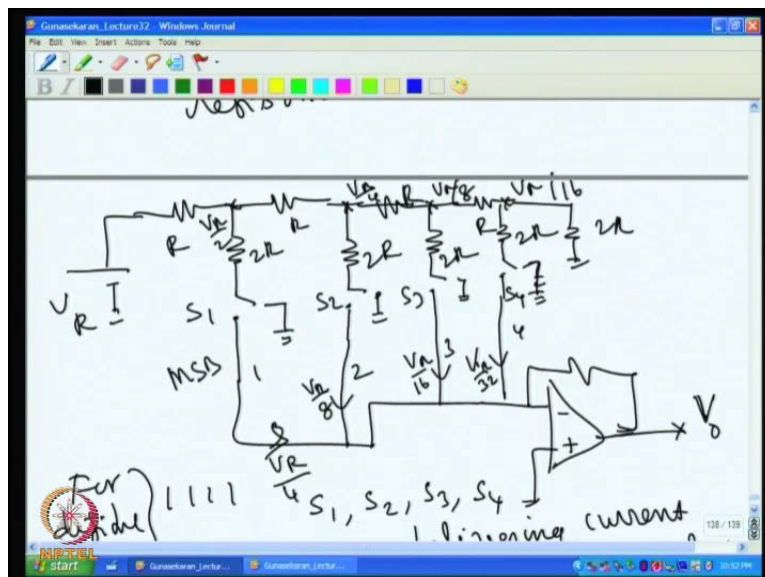 Gunasekaran_Lecture32 - Windows Journal
File Edit View Insert Actions Tools Help
B I
VR/4 R VR/8 VR/16
R VR/2 R R
2R 2R 2R 2R 2R
VR
S1 S2 S3 S4
MSB 1 2 3 4
VR/8 VR/16 VR/32
VR/4
V0
- +
For 1111 S1, S2, S3, S4
current
138 / 139
NPTEL
start Gunasekaran_Lectur... Gunasekaran_Lectur... 10:52 PM